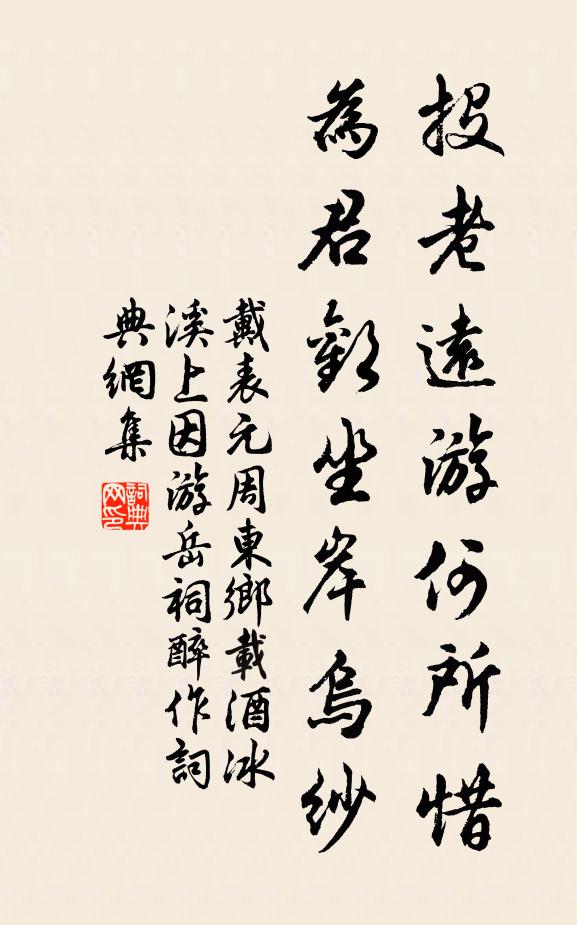 投老遠游何所惜
為君歡坐岸烏紗
戴表元周東鄉載酒冰
溪上因游岳祠醉作詞
典網集
詞典
网印